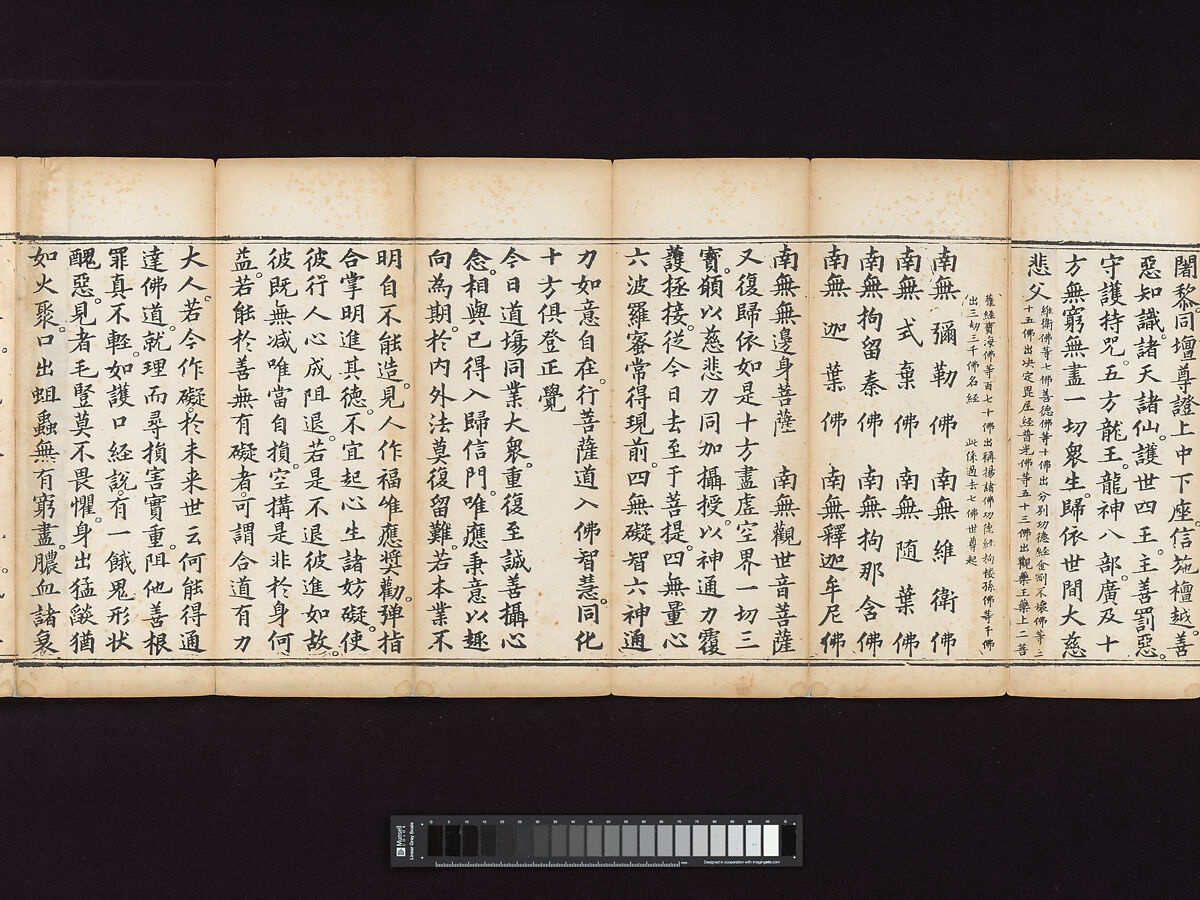 闍黎同壇尊證上中下座。信施檀越。善
惡知識。諸天諸仙。護世四王。主善罰惡。
守護持咒。五方龍王。龍神八部。廣及十
方無窮無盡一切衆生。歸依世間大慈
悲父
維衛佛等七佛善德佛等十佛出分別功德經金剛不壞佛等三
十五佛出決定毘尼經普光佛等五十三佛出觀藥王藥上二菩
薩經寶海佛等百七十佛出稱揚諸佛功德經拘樓孫佛等千佛
出三劫三千佛名經 此係過去七佛世尊起
南無彌勒佛 南無維衛佛
南無式棄佛 南無隨葉佛
南無拘留秦佛 南無拘那含佛
南無迦葉佛 南無釋迦牟尼佛
南無無邊身菩薩 南無觀世音菩薩
又復歸依如是十方盡虛空界一切三
寶。願以慈悲力同加攝授。以神通力覆
護拯接。從今日去至于菩提。四無量心
六波羅蜜常得現前。四無礙智六神通
力如意自在。行菩薩道入佛智慧。同化
十方俱登正覺
今日道場同業大衆。重復至誠善攝心
念。相與已得入歸信門。唯應秉意以趣
向為期。於內外法莫復留難。若本業不
明自不能造。見人作福唯應獎勸。彈指
合掌明進其德。不宜起心生諸妨礙。使
彼行人心成阻退。若是不退彼進如故。
彼既無減唯當自損。空搆是非於身何
益。若能於善無有礙者。可謂合道有力
大人。若今作礙。於未來世云何能得通
達佛道。就理而尋損害實重。阻他善根
罪真不輕。如護口經說。有一餓鬼形狀
醜惡。見者毛豎莫不畏懼。身出猛燄猶
如火聚。口出蛆蟲無有窮盡。膿血諸衰